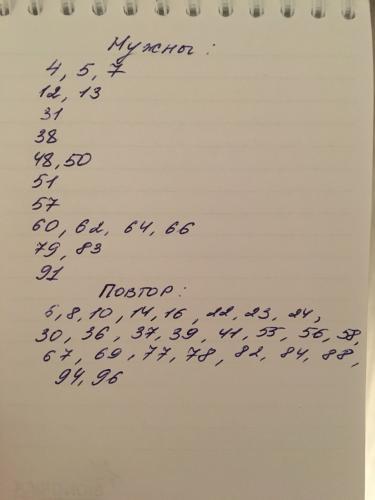 Нужны:
4, 5, 7
12, 13
31
38
48, 50
51
57
60, 62, 64, 66
79, 83
91
Повтор:
6, 8, 10, 14, 16, 22, 23, 24,
30, 36, 37, 39, 41, 55, 56, 58,
67, 69, 77, 78, 82, 84, 88,
94, 96